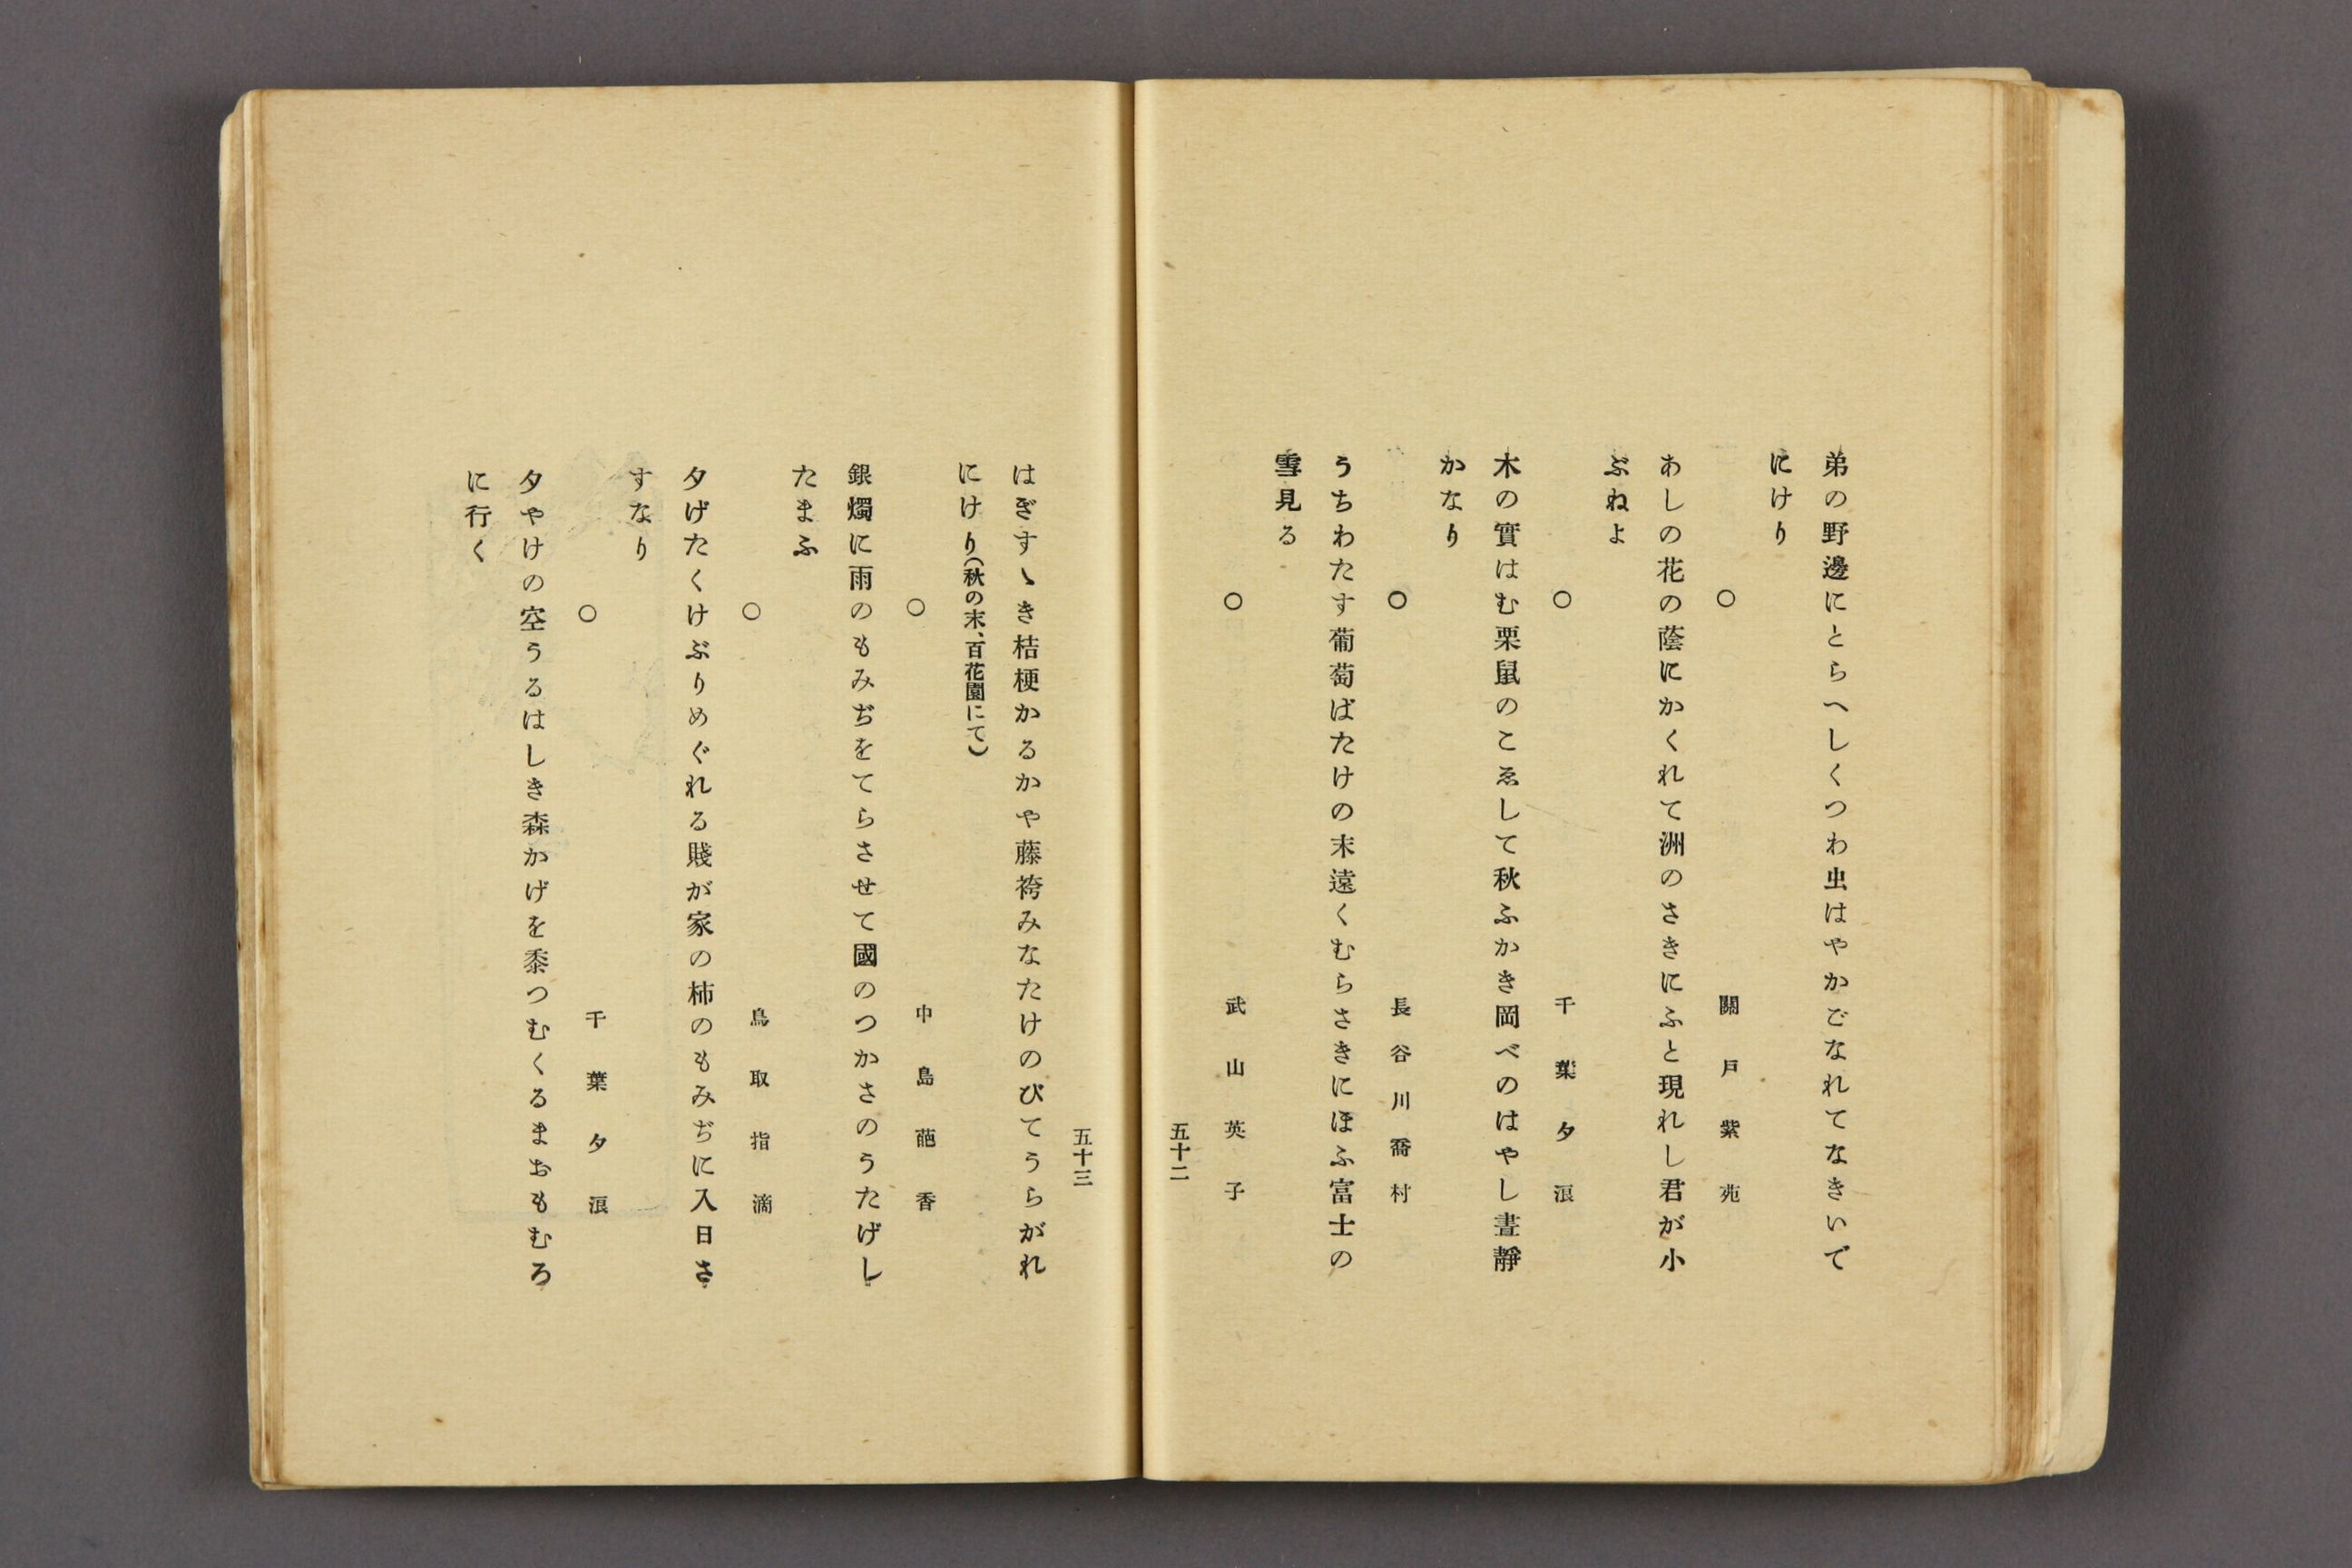 弟の野邊にとらへしくつわ虫はやかごなれてなきいで
にけり
○ 關戸紫苑
あしの花の蔭にかくれて洲のさきにふと現れし君が小
ぶねよ
○ 千葉夕浪
木の實はむ栗鼠のこゑして秋ふかき岡べのはやし晝靜
かなり
○ 長谷川喬村
うちわたす葡萄ばたけの末遠くむらさきにほふ富士の
雪見る
○ 武山英子
五十二
五十三
はぎすゝき桔梗かるかや藤袴みなたけのびてうらがれ
にけり(秋の末、百花園にて)
○ 中島葩香
銀燭に雨のもみぢをてらさせて國のつかさのうたげし
たまふ
○ 鳥取指滴
夕げたくけぶりめぐれる賤が家の柿のもみぢに入日さ
すなり
○ 千葉夕浪
夕やけの空うるはしき森かげを黍つむくるまおもむろ
に行く